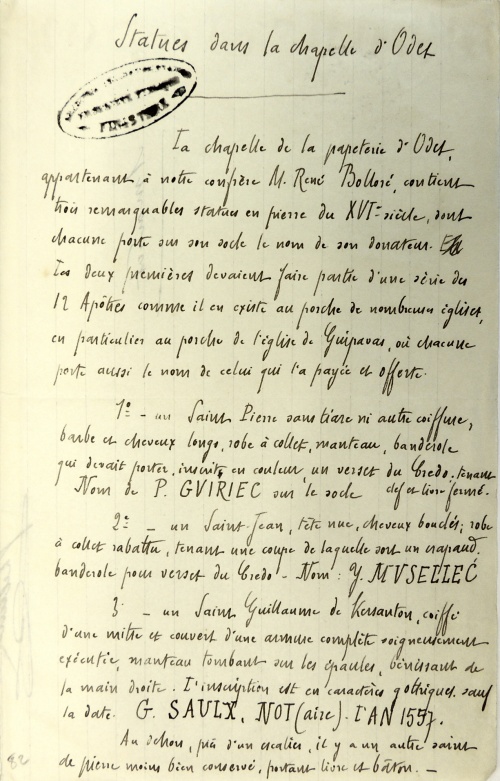 Statues dans la chapelle d'Odet
FINISTÈRE
La chapelle de la papeterie d'Odet,
appartenant à notre confrère M. René Bolloré, contient
trois remarquables statues en pierre du XVIe siècle, dont
chacune porte sur son socle le nom de son donateur.
Les deux premières devaient faire partie d'une série des
12 Apôtres comme il en existe au porche de nombreuses églises,
en particulier au porche de l'église de Guipavas, où chacune
porte aussi le nom de celui qui l'a payée et offerte.
1o - un Saint Pierre sans tiare ni autre coiffure,
barbe et cheveux longs, robe à collet, manteau, banderole
qui devait porter, inscrits en couleur, un verset du Credo, tenant
clef et livre fermé.
Nom de P. GVIRIEC sur le socle
2e - un Saint Jean, tête nue, cheveux bouclés; robe
à collet rabattu, tenant une coupe de laquelle sort un crapaud.
banderole pour verset du Credo - Nom : Y. MVSELLEC
3 - un Saint Guillaume de Kersanton, coiffé
d'une mitre et couvert d'une armure complète soigneusement
exécutée, manteau tombant sur les épaules, bénissant de
la main droite. L'inscription est en caractères gothiques, sauf
la date. G. SAULX, NOT(aire). L'AN 1557.
Au dehors, près d'un escalier, il y a un autre saint
de pierre moins bien conservé, portant livre et bâton. -
82